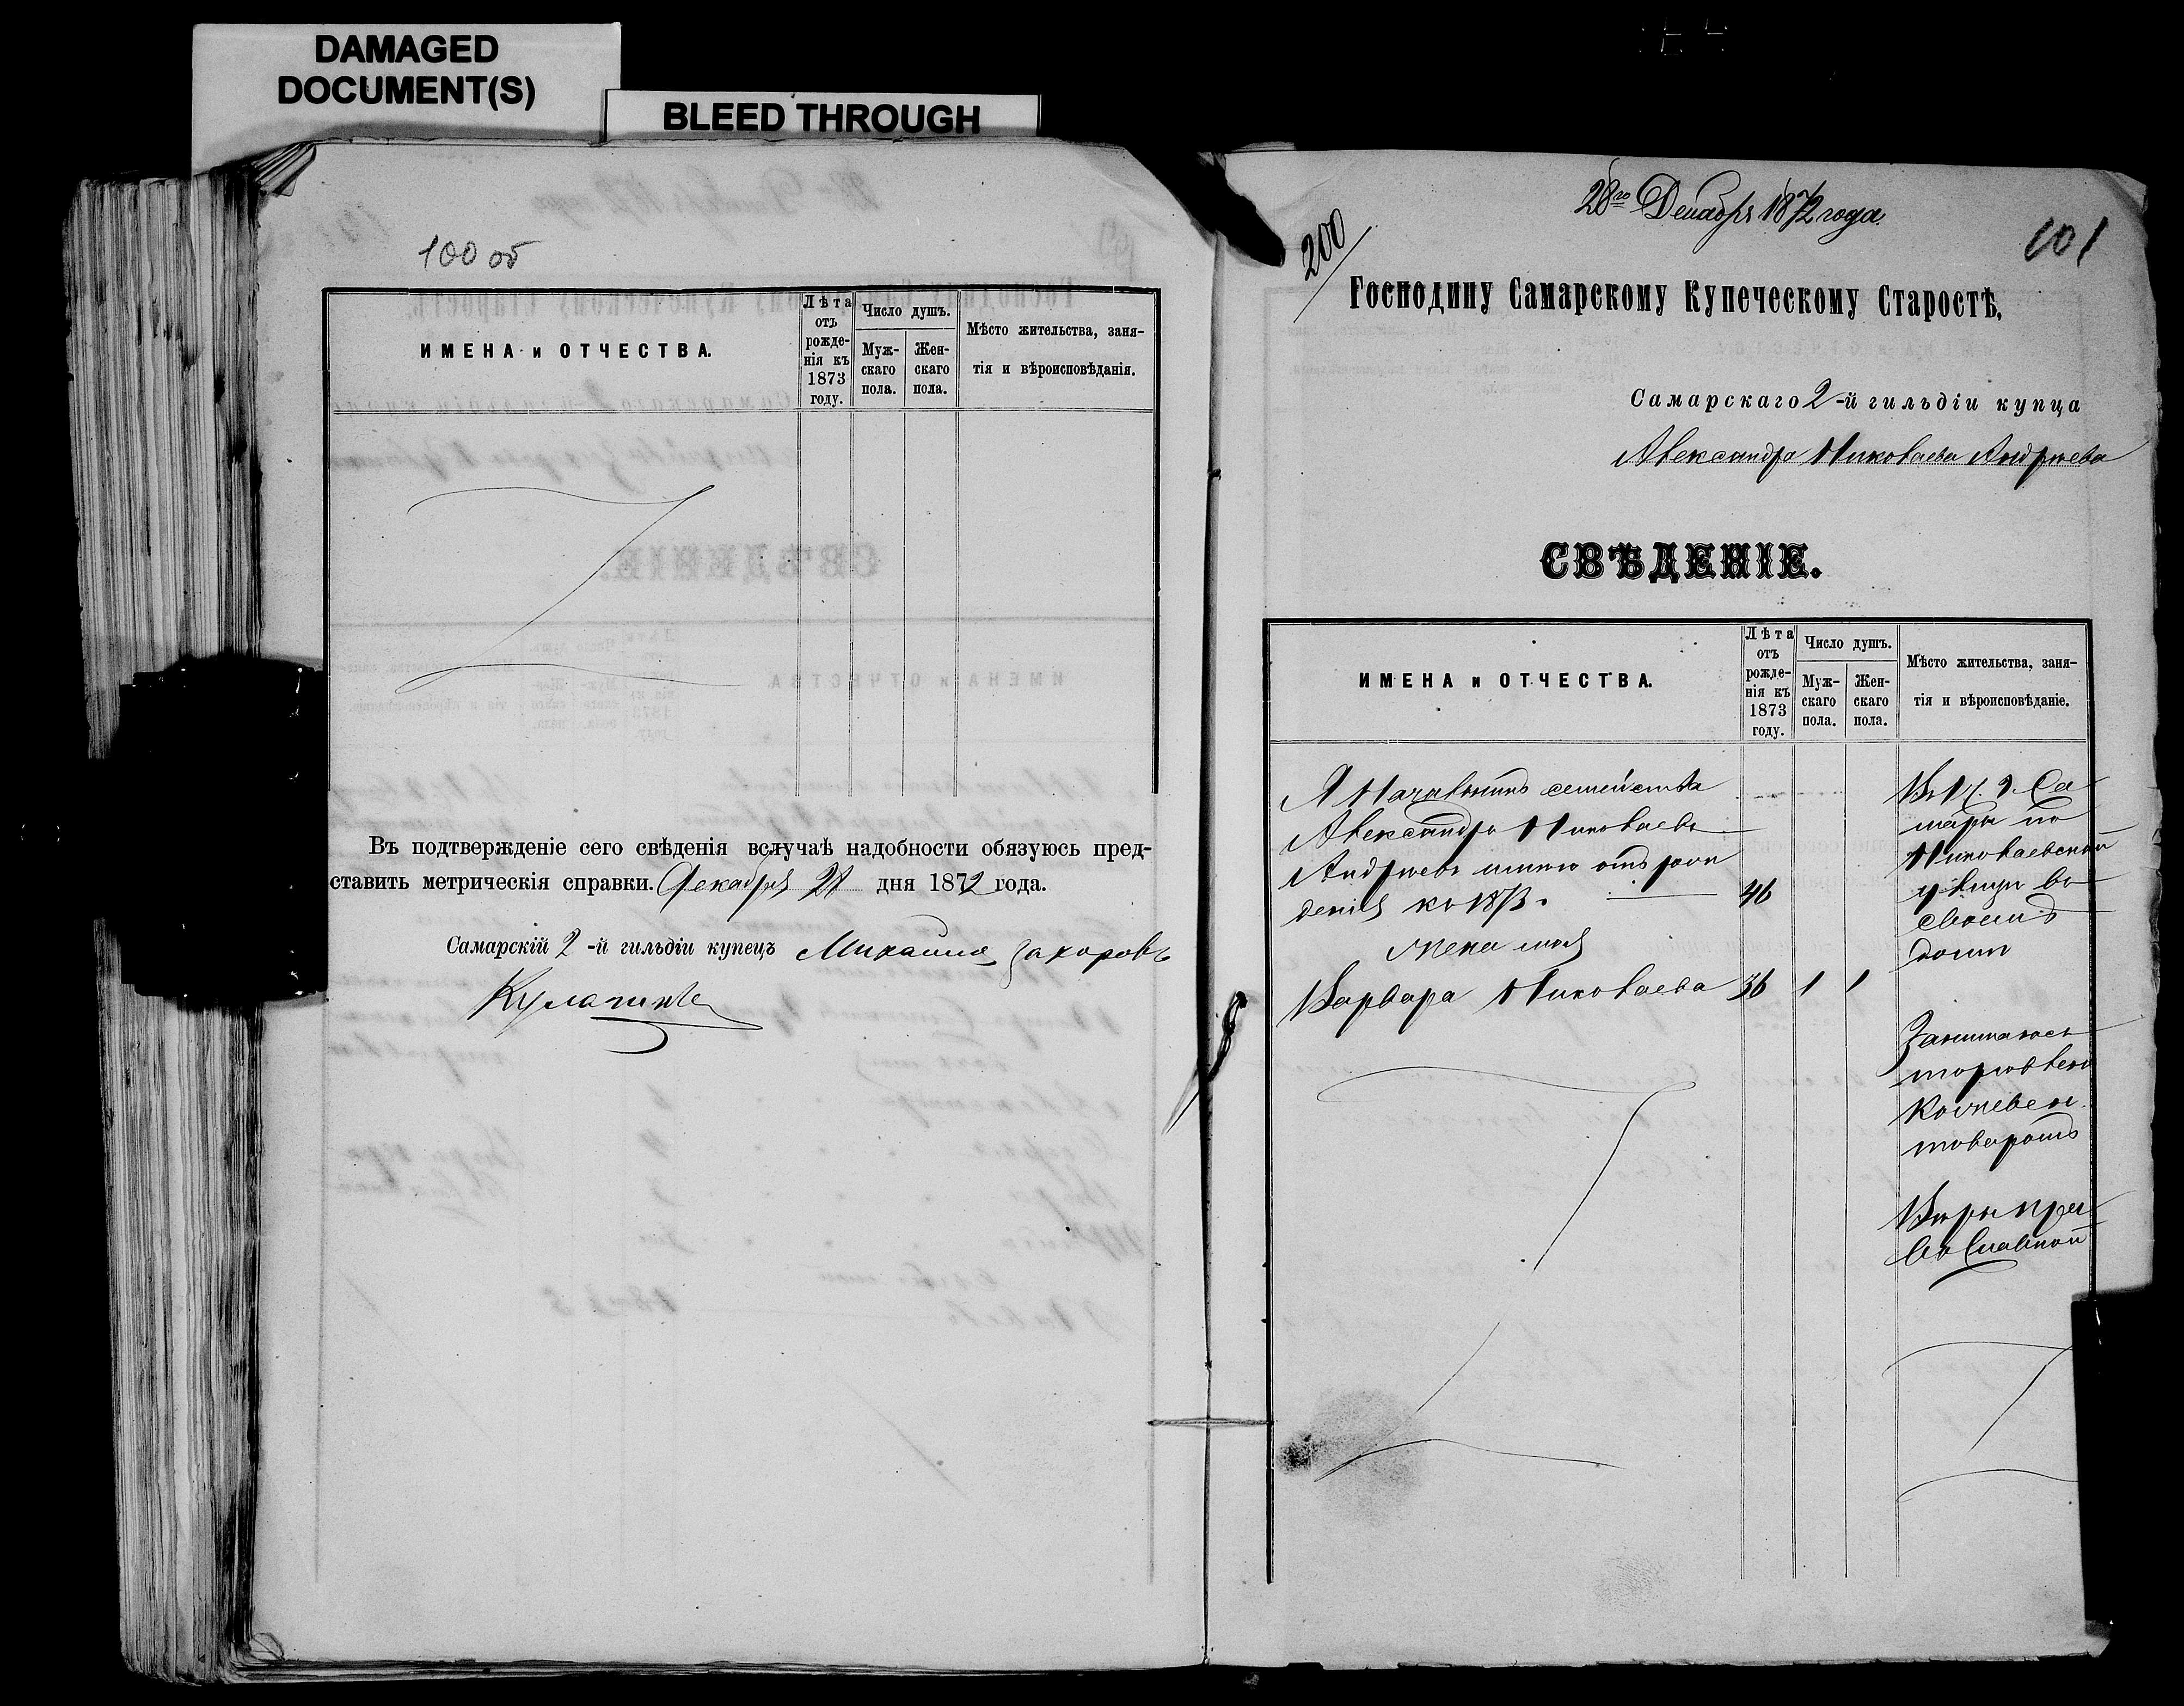 DAMAGED
DOCUMENT(S)
BLEED THROUGH
100 об
ИМЕНА и ОТЧЕСТВА.
Лѣта
отъ
рожде-
нія къ
1873
году.
Число душъ.
Муж-
скаго
пола.
Жен-
скаго
пола.
Мѣсто жительства, заня-
тія и вѣроисповѣданія.
Въ подтвержденіе сего свѣденія вслучаѣ надобности обязуюсь пред-
ставить метрическія справки. Декабря 21 дня 1872 года.
Самарскій 2-й гильдіи купецъ Михаилъ Захоровъ
28го Декабря 1872 года.
200
101
Господину Самарскому Купеческому Старостѣ,
Самарскаго 2-й гильдіи купца
Александра Николаева Андрѣева
СВѢДЕНІЕ.
ИМЕНА и ОТЧЕСТВА.
Лѣта
отъ
рожде-
нія къ
1873
году.
Число душъ.
Муж-
скаго
пола.
Жен-
скаго
пола.
Мѣсто жительства, заня-
тія и вѣроисповѣданіе.
Я Начальникъ семейства
Александръ Николаевъ
Андрѣевъ имѣю отъ рож
денія къ 1873. 46
Жена моя
Варвара Николаева 36 1 1
г. Са-
мары по
Николаевской
улицѣ во
своемъ
домѣ
Занимаюсь
торговлею
Кожевен.
товаромъ
Вѣры пра-
вославной